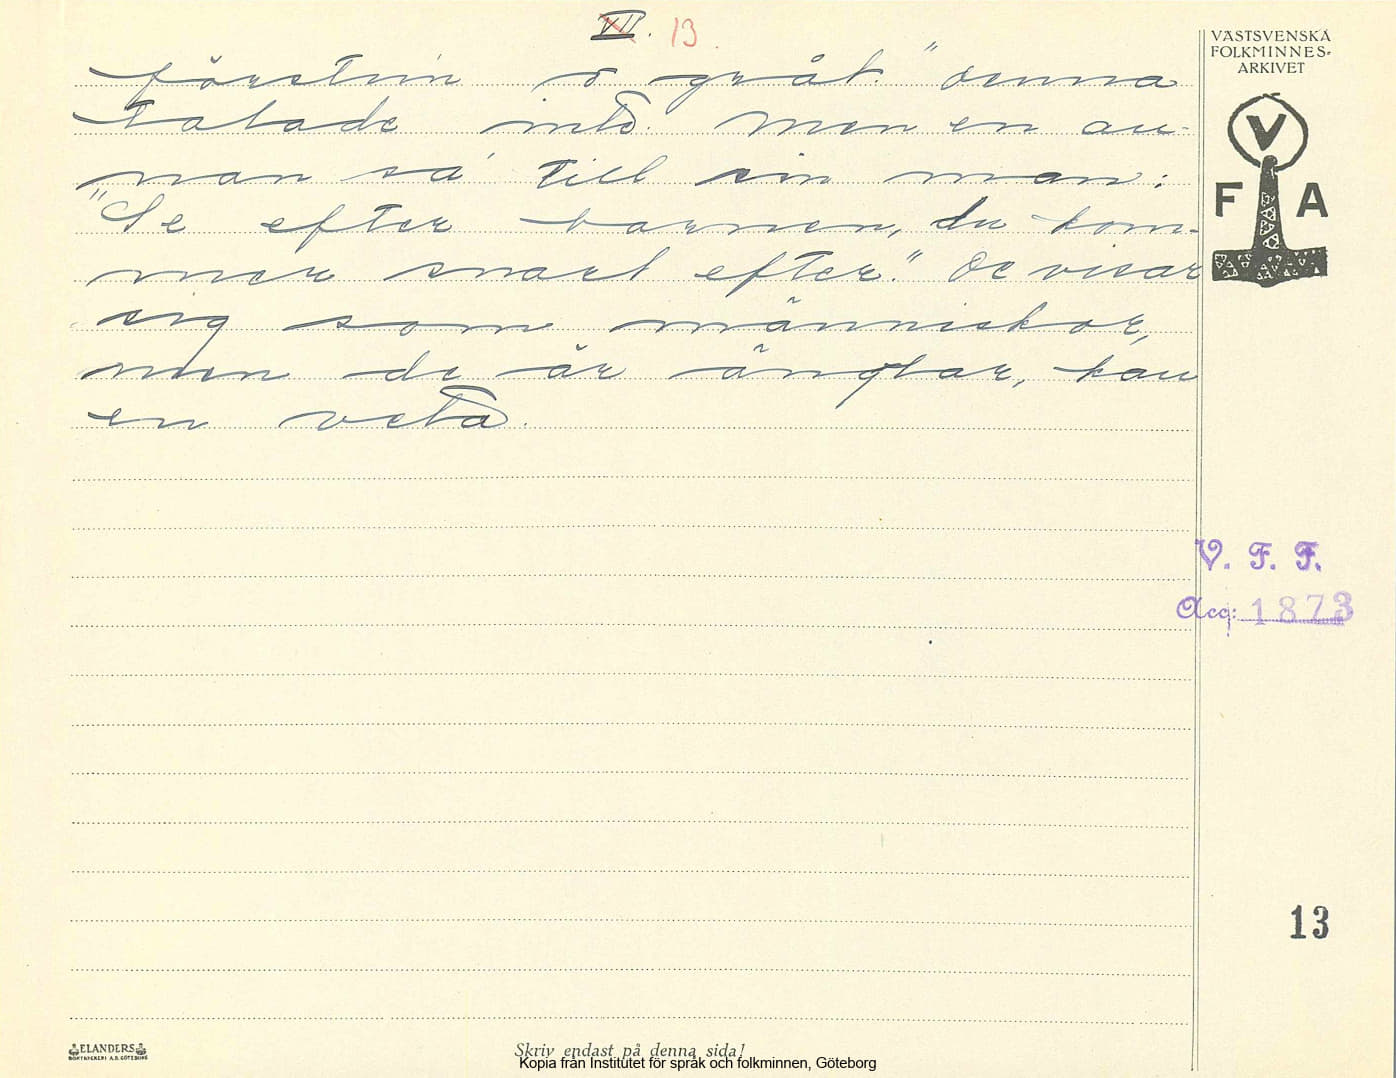 VII. 13
VÄSTSVENSKA
FOLKMINNES-
ARKIVET
V
F A
förstvin ô gråt." Denna
talade intô. Men en an-
nan sa' till sin man:
"Se efter barnen, du kom-
mer snart efter." De visar
sig som människor,
men de är änglar, kan
en veta.
V. F. F.
Acc: 1873
13
ELANDERS
BOKTRYCKERI A.B. GÖTEBORG
Skriv endast på denna sida!
Kopia från Institutet för språk och folkminnen, Göteborg